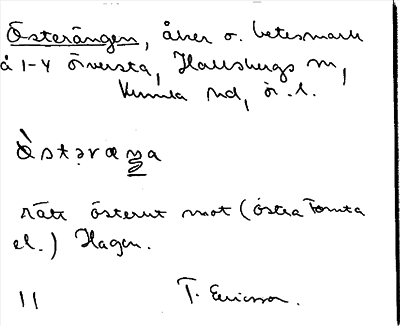 Österängen, åker o. betesmark
å 1-4 Örversta, Hallsbergs sn,
Kumla hd, ör. l.
rätt österut mot (östra Tomta
el.) Hagen.
11 T. Ericsson.